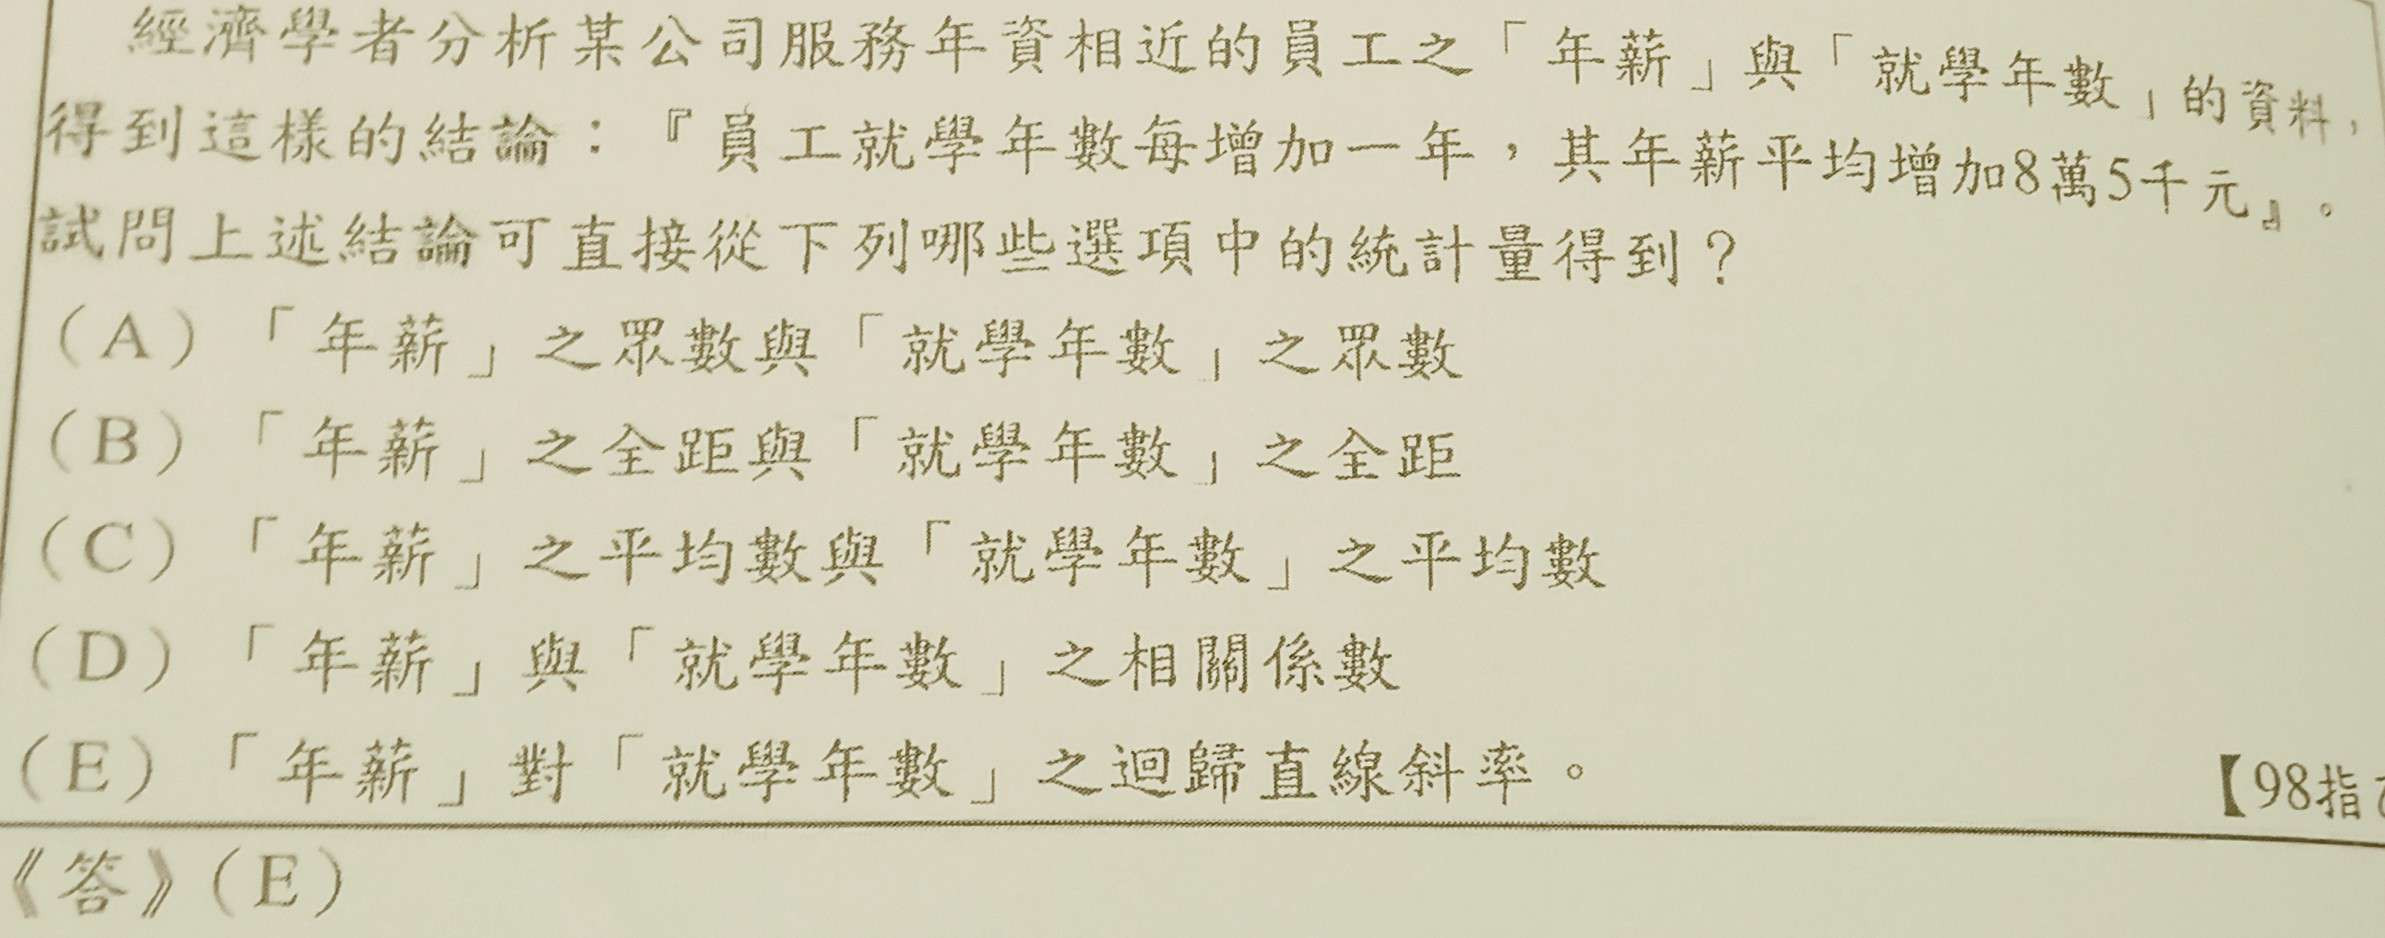 經濟學者分析某公司服務年資相近的員工之「年薪」與「就學年數」的資料，
得到這樣的結論：『員工就學年數每增加一年，其年薪平均增加8萬5千元』。
試問上述結論可直接從下列哪些選項中的統計量得到？
（A）「年薪」之眾數與「就學年數」之眾數
（B）「年薪」之全距與「就學年數」之全距
（C）「年薪」之平均數與「就學年數」之平均數
（D）「年薪」與「就學年數」之相關係數
（E）「年薪」對「就學年數」之迴歸直線斜率。
【98指
《答》（E）